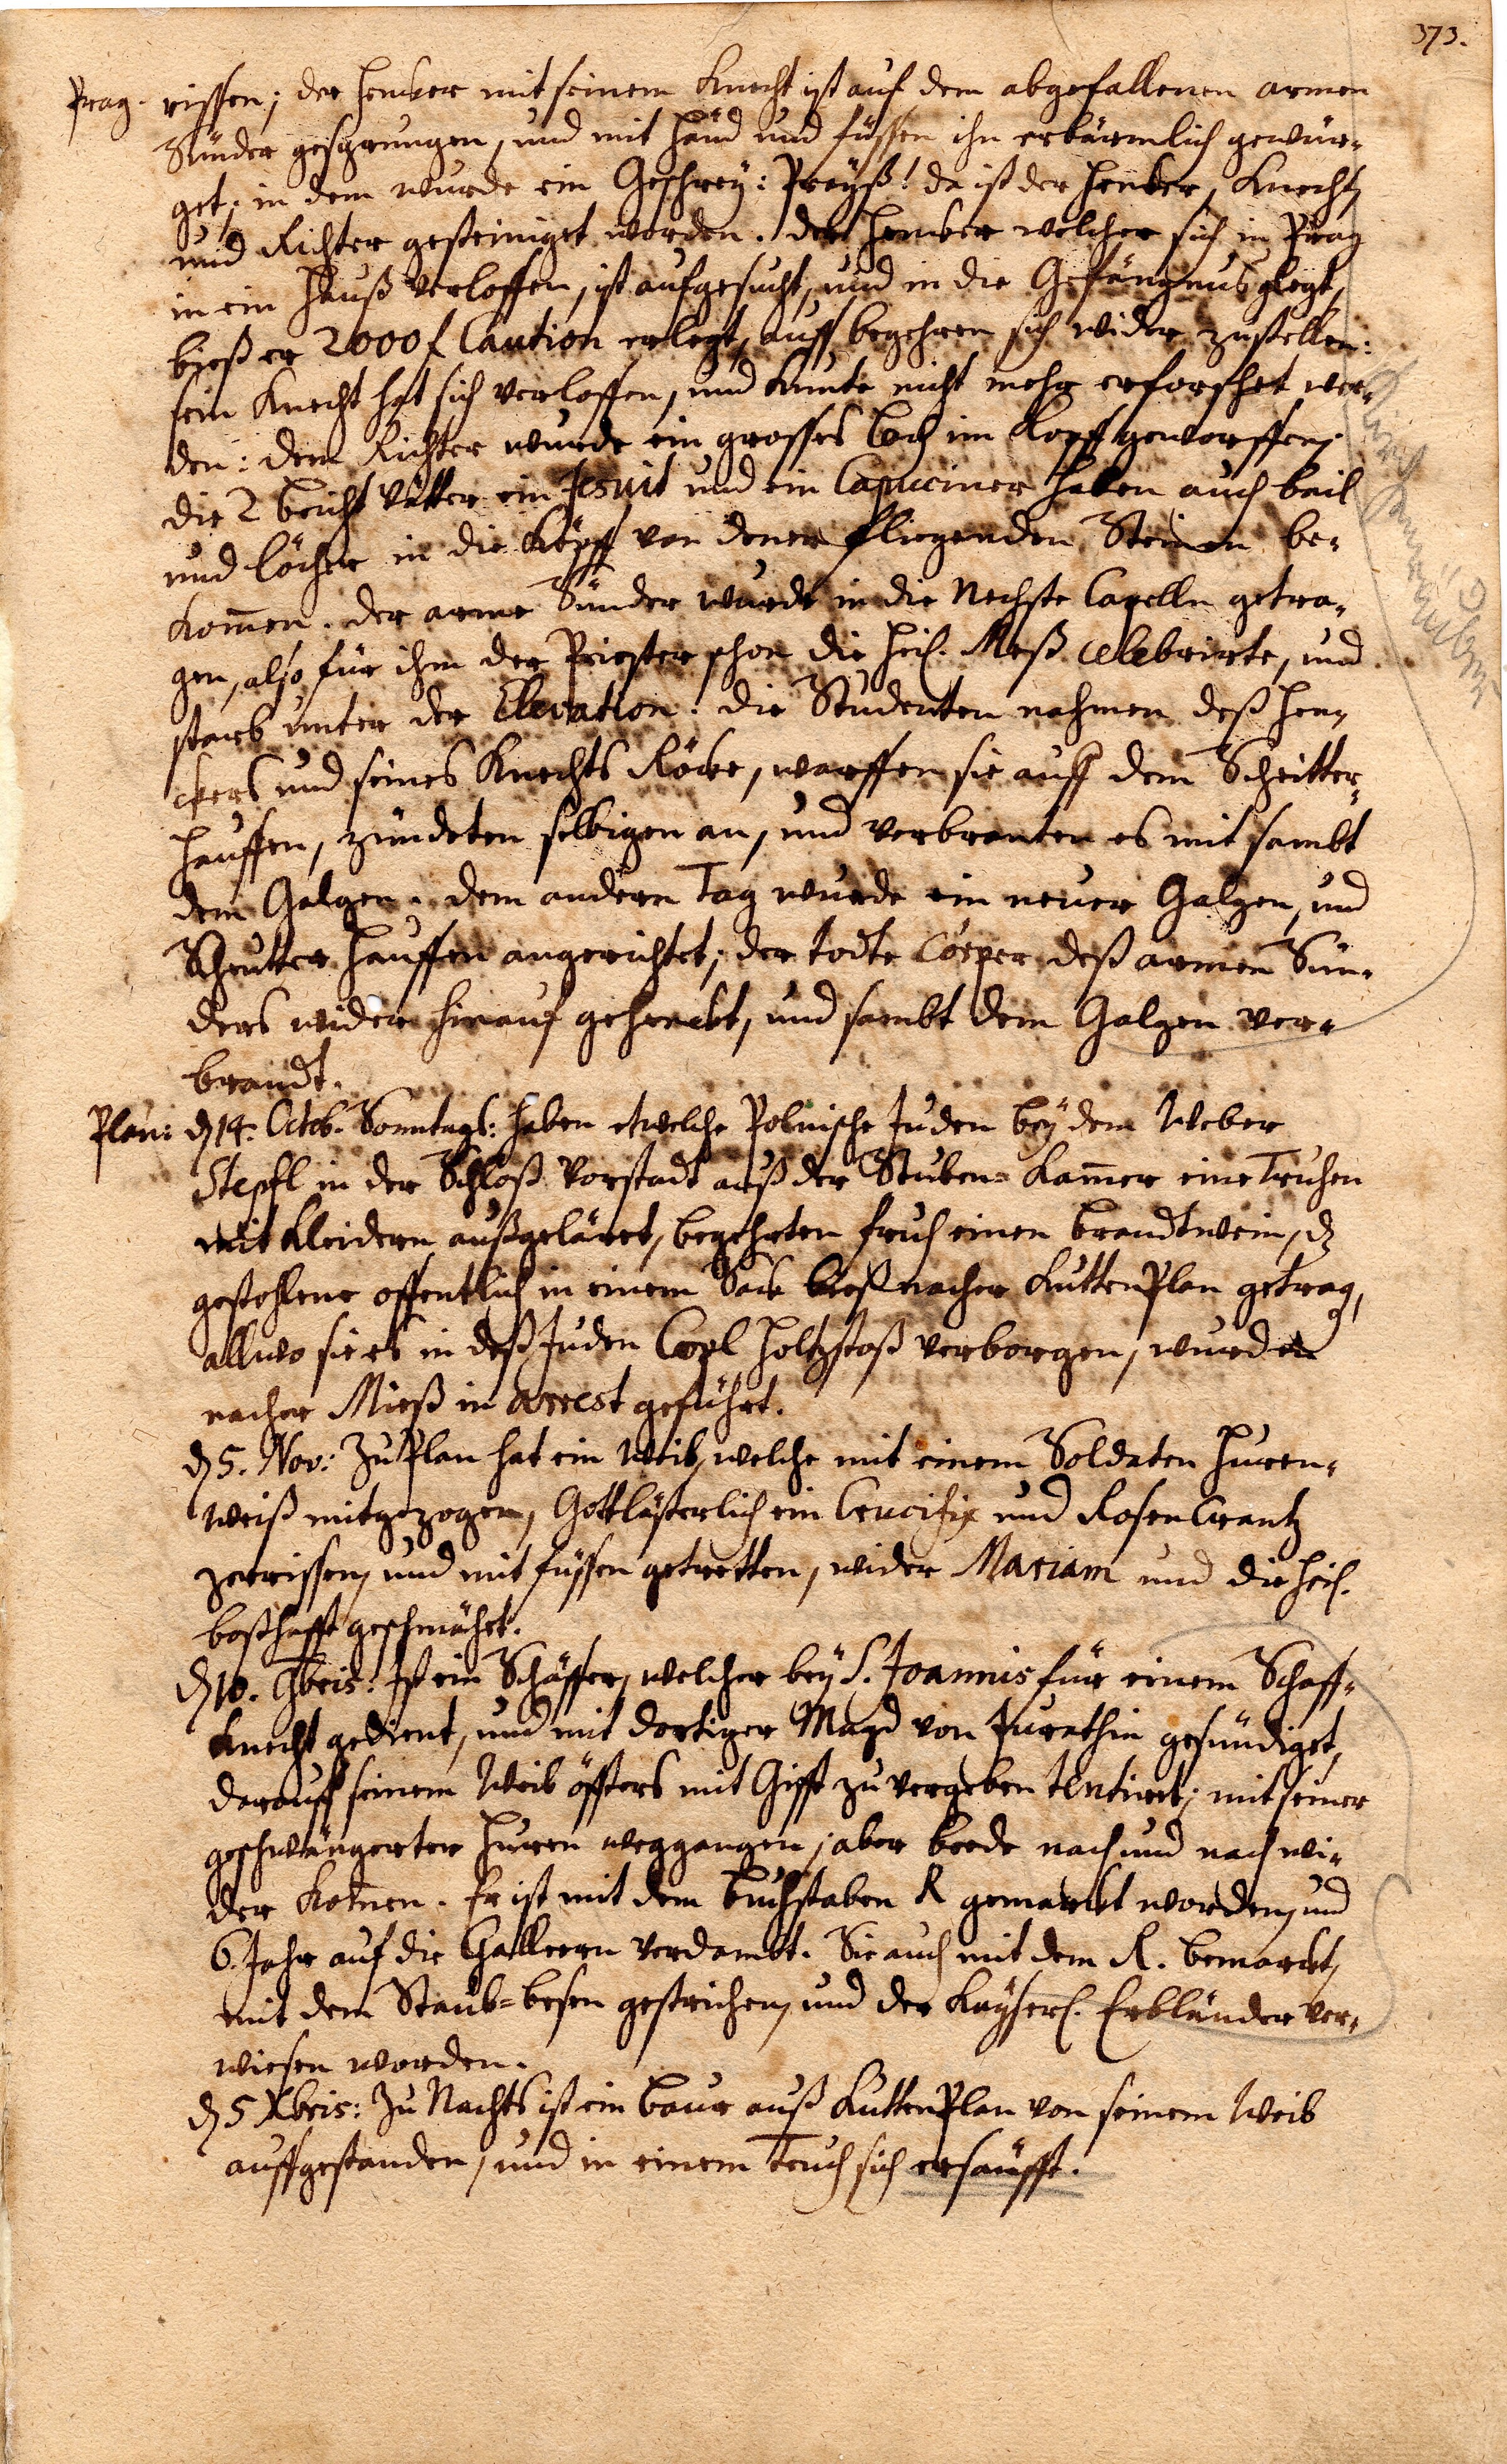 373.
Prag. rissen; der Hencker mit seinem Knecht ist auf dem abgefallenen armen
Sünder gesprungen, und mit Händ und füssen ihn erbärmlich gewür-
get; in dem wurde ein Geschrey: Preyß! da ist der Hencker, Knecht,
und Richter gesteiniget worden. der Hencker welcher sich in Prag
in ein Hauß verloffen, ist aufgesucht, und in die Gefängnus glegt,
bieß er 2000 f Caution erlegt, auff begehren sich wider zustellen:
sein Knecht hat sich verloffen, und kunte nicht mehr erforschet wer-
den: dem Richter wurde ein grosses Loch im Kopff geworffen;
die 2 beicht Vätter ein Jesuit und ein Capuciner haben auch beil
und löcher in die Köpff von denen fliegenden Steinen be-
kom̅en. der arme Sünder wurde in die Nechste Capelln getra-
gen, also für ihm der Priester schon die heil. Meß celebrirte, und
starb unter der Elevation: die Studenten nahmen deß Hen-
ckers und seines Knechts Röcke, warffen sie auff dem Scheitter-
hauffen, zündeten selbigen an, und verbranten es mit sambt
dem Galgen. dem andern Tag wurde ein neuer Galgen, und
Scheutter hauffen angerichtet; der todte Cörper deß armen Sün-
ders wider hinauf gehenckt, und sambt dem Galgen ver-
brandt.
Plan: d 14. Octob. Sonntags: haben etwelche Polnische Juden bey dem Weber
Stepfl in der Schloß Vorstadt auß der Stuben-Kam̅er eine Truhen
mit Kleidern außgelärt, begehrten fruh einen brandtwein, dz
gestohlene offentlich in einem Sack bieß nacher KuttenPlan getrag,
allwo sie es in deß Juden Copl Holtzstoß verborgen, wurden
nacher Mieß in Arrest geführt.
d 5. Nov: Zu Plan hat ein Weib, welche mit einem Soldaten Huren-
weiß mitgezogen, Gottlästerlich ein Crucifix und RosenCrantz
zerrissen, und mit füssen getretten, wider Mariam und die heil.
boßhafft geschmähet.
d 10. 9bris: Ist ein Schäffer, welcher bey S. Joannis für einem Schaff-
knecht gedient, und mit dortiger Magd von Jurathin gesündiget,
darauff seinem Weib öffters mit Gifft zu vergeben tentiret; mit seiner
geschwängerten Huren weggangen; aber beede nach und nach wi-
der kom̅en. Er ist mit dem buchstaben R gemarckt worden, und
6. Jahr auf die Galleern verdambt. Sie auch mit dem R. bemarckt,
mit dem Staub-besen gestrichen, und der Kayserl. Erbländer ver-
wiesen worden.
d 5 Xbris: Zu Nachts ist ein baur auß KuttenPlan von seinem Weib
auffgestanden, und in einem Teuch sich ersäufft.